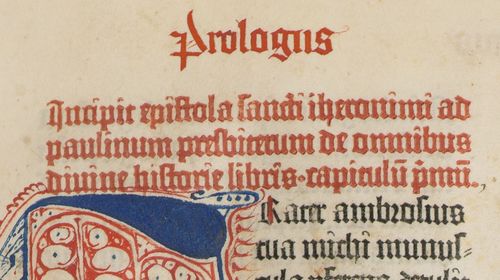 Prologus
Incipit epistola sancti iheronimi ad
paulinum presbiterum de omnibus
divine historie libris · capitulū pͥmū.
Frater ambrosius
tua michi munus⸗
cula perferens detulit